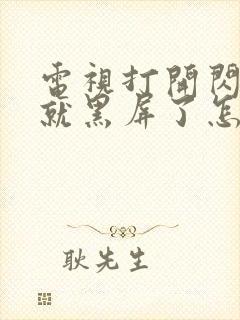 電視打開閃
就黑屏了怎
耿先生